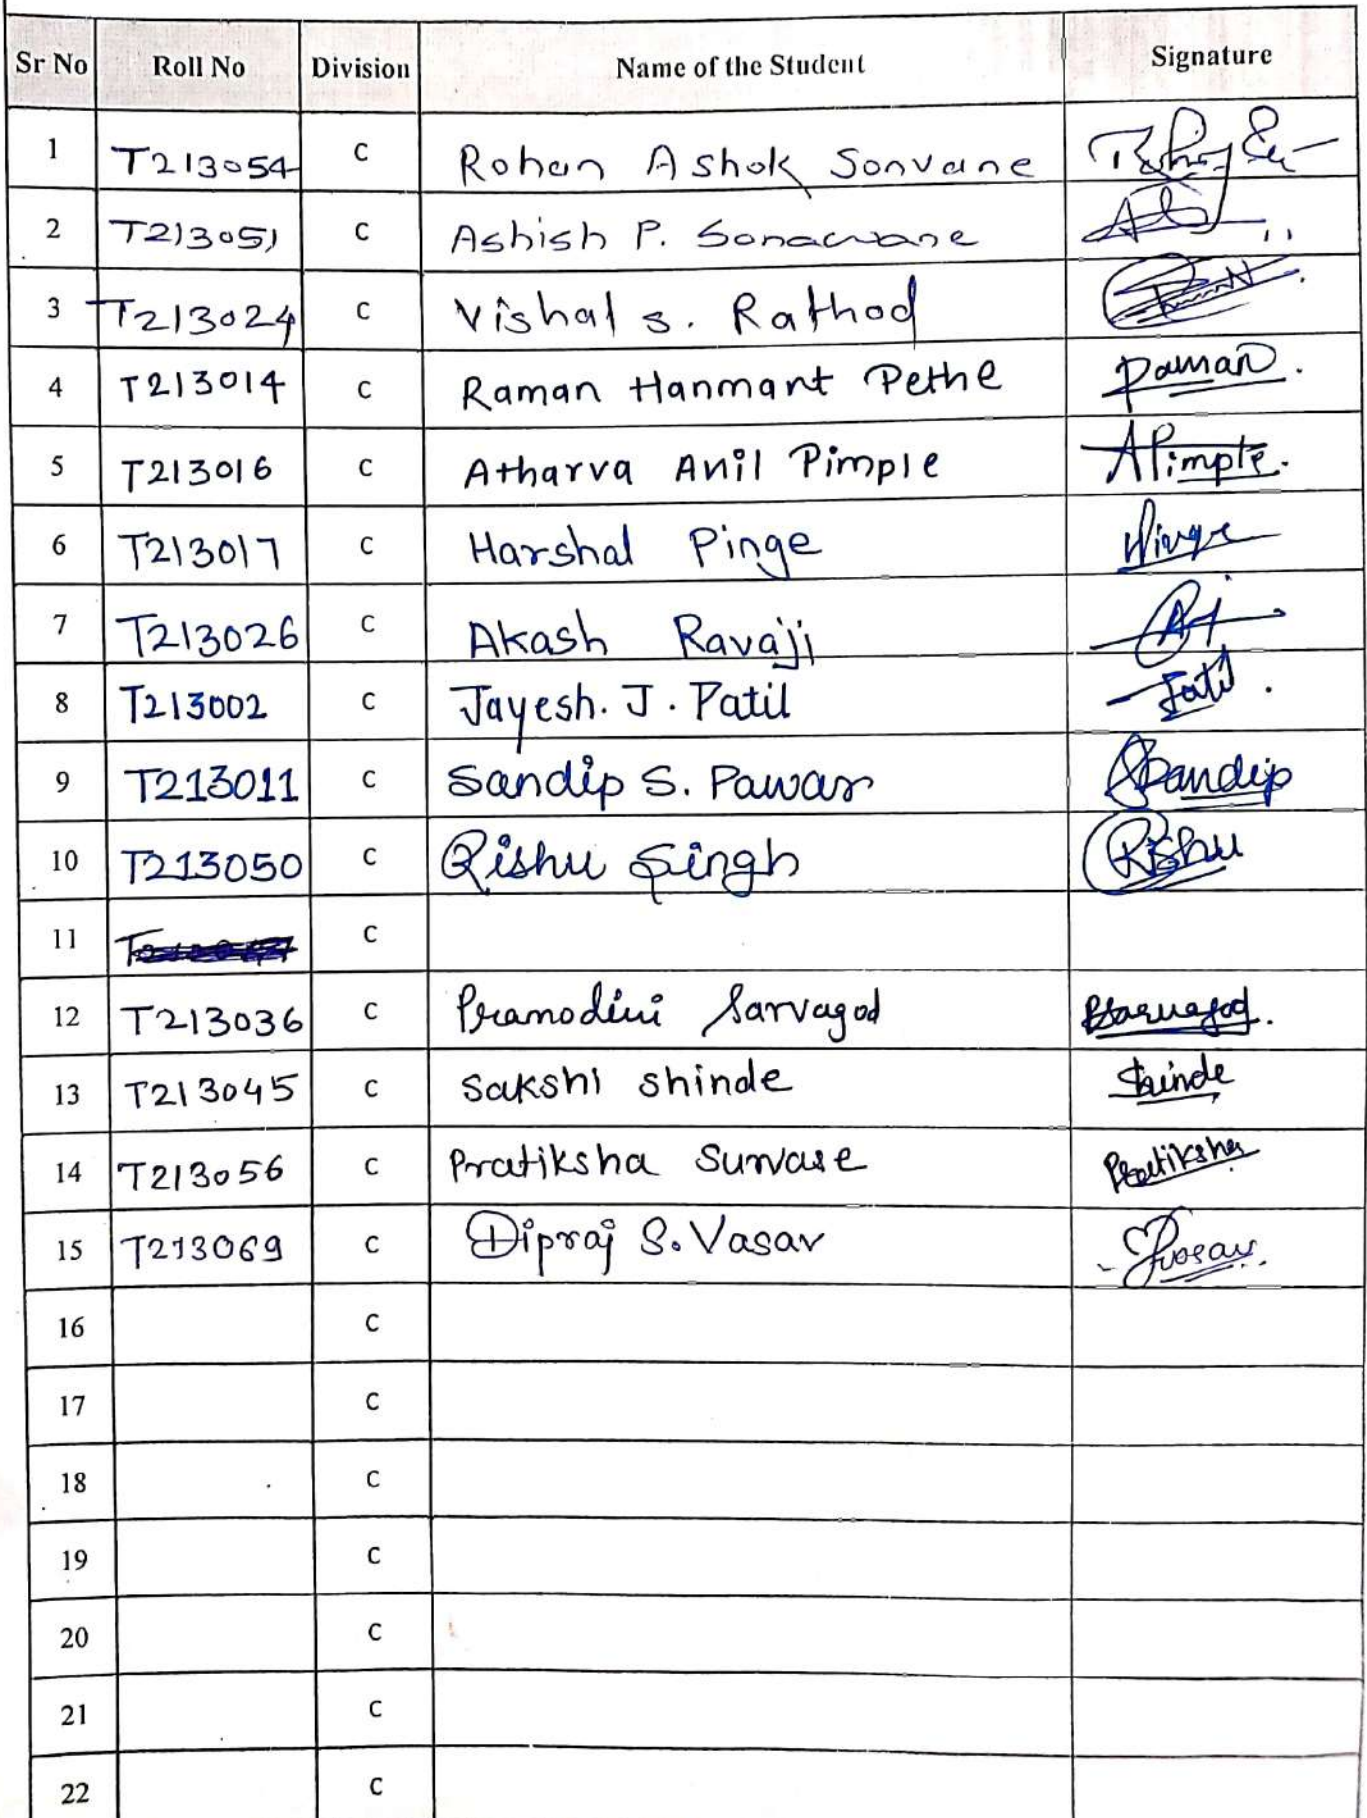 Sr No Roll No Division Name of the Student Signature
1 T213054 C Rohan Ashok Sonvane
2 T213051 C Ashish P. Sonawane
3 T213024 C Vishal s. Rathod
4 T213014 C Raman Hanmant Pethe Raman.
5 T213016 C Atharva Anil Pimple APimple.
6 T213017 C Harshal Pinge
7 T213026 C Akash Ravaji
8 T213002 C Jayesh. J. Patil Patil.
9 T213011 C Sandip S. Pawar Sandip
10 T213050 C Rishu Singh Rishu
11 C
12 T213036 C Pramodini Sarvagod PSarvagod.
13 T213045 C Sakshi shinde Shinde
14 T213056 C Pratiksha Survase Pratiksha
15 T213069 C Dipraj S. Vasav
16 C
17 C
18 C
19 C
20 C
21 C
22 C